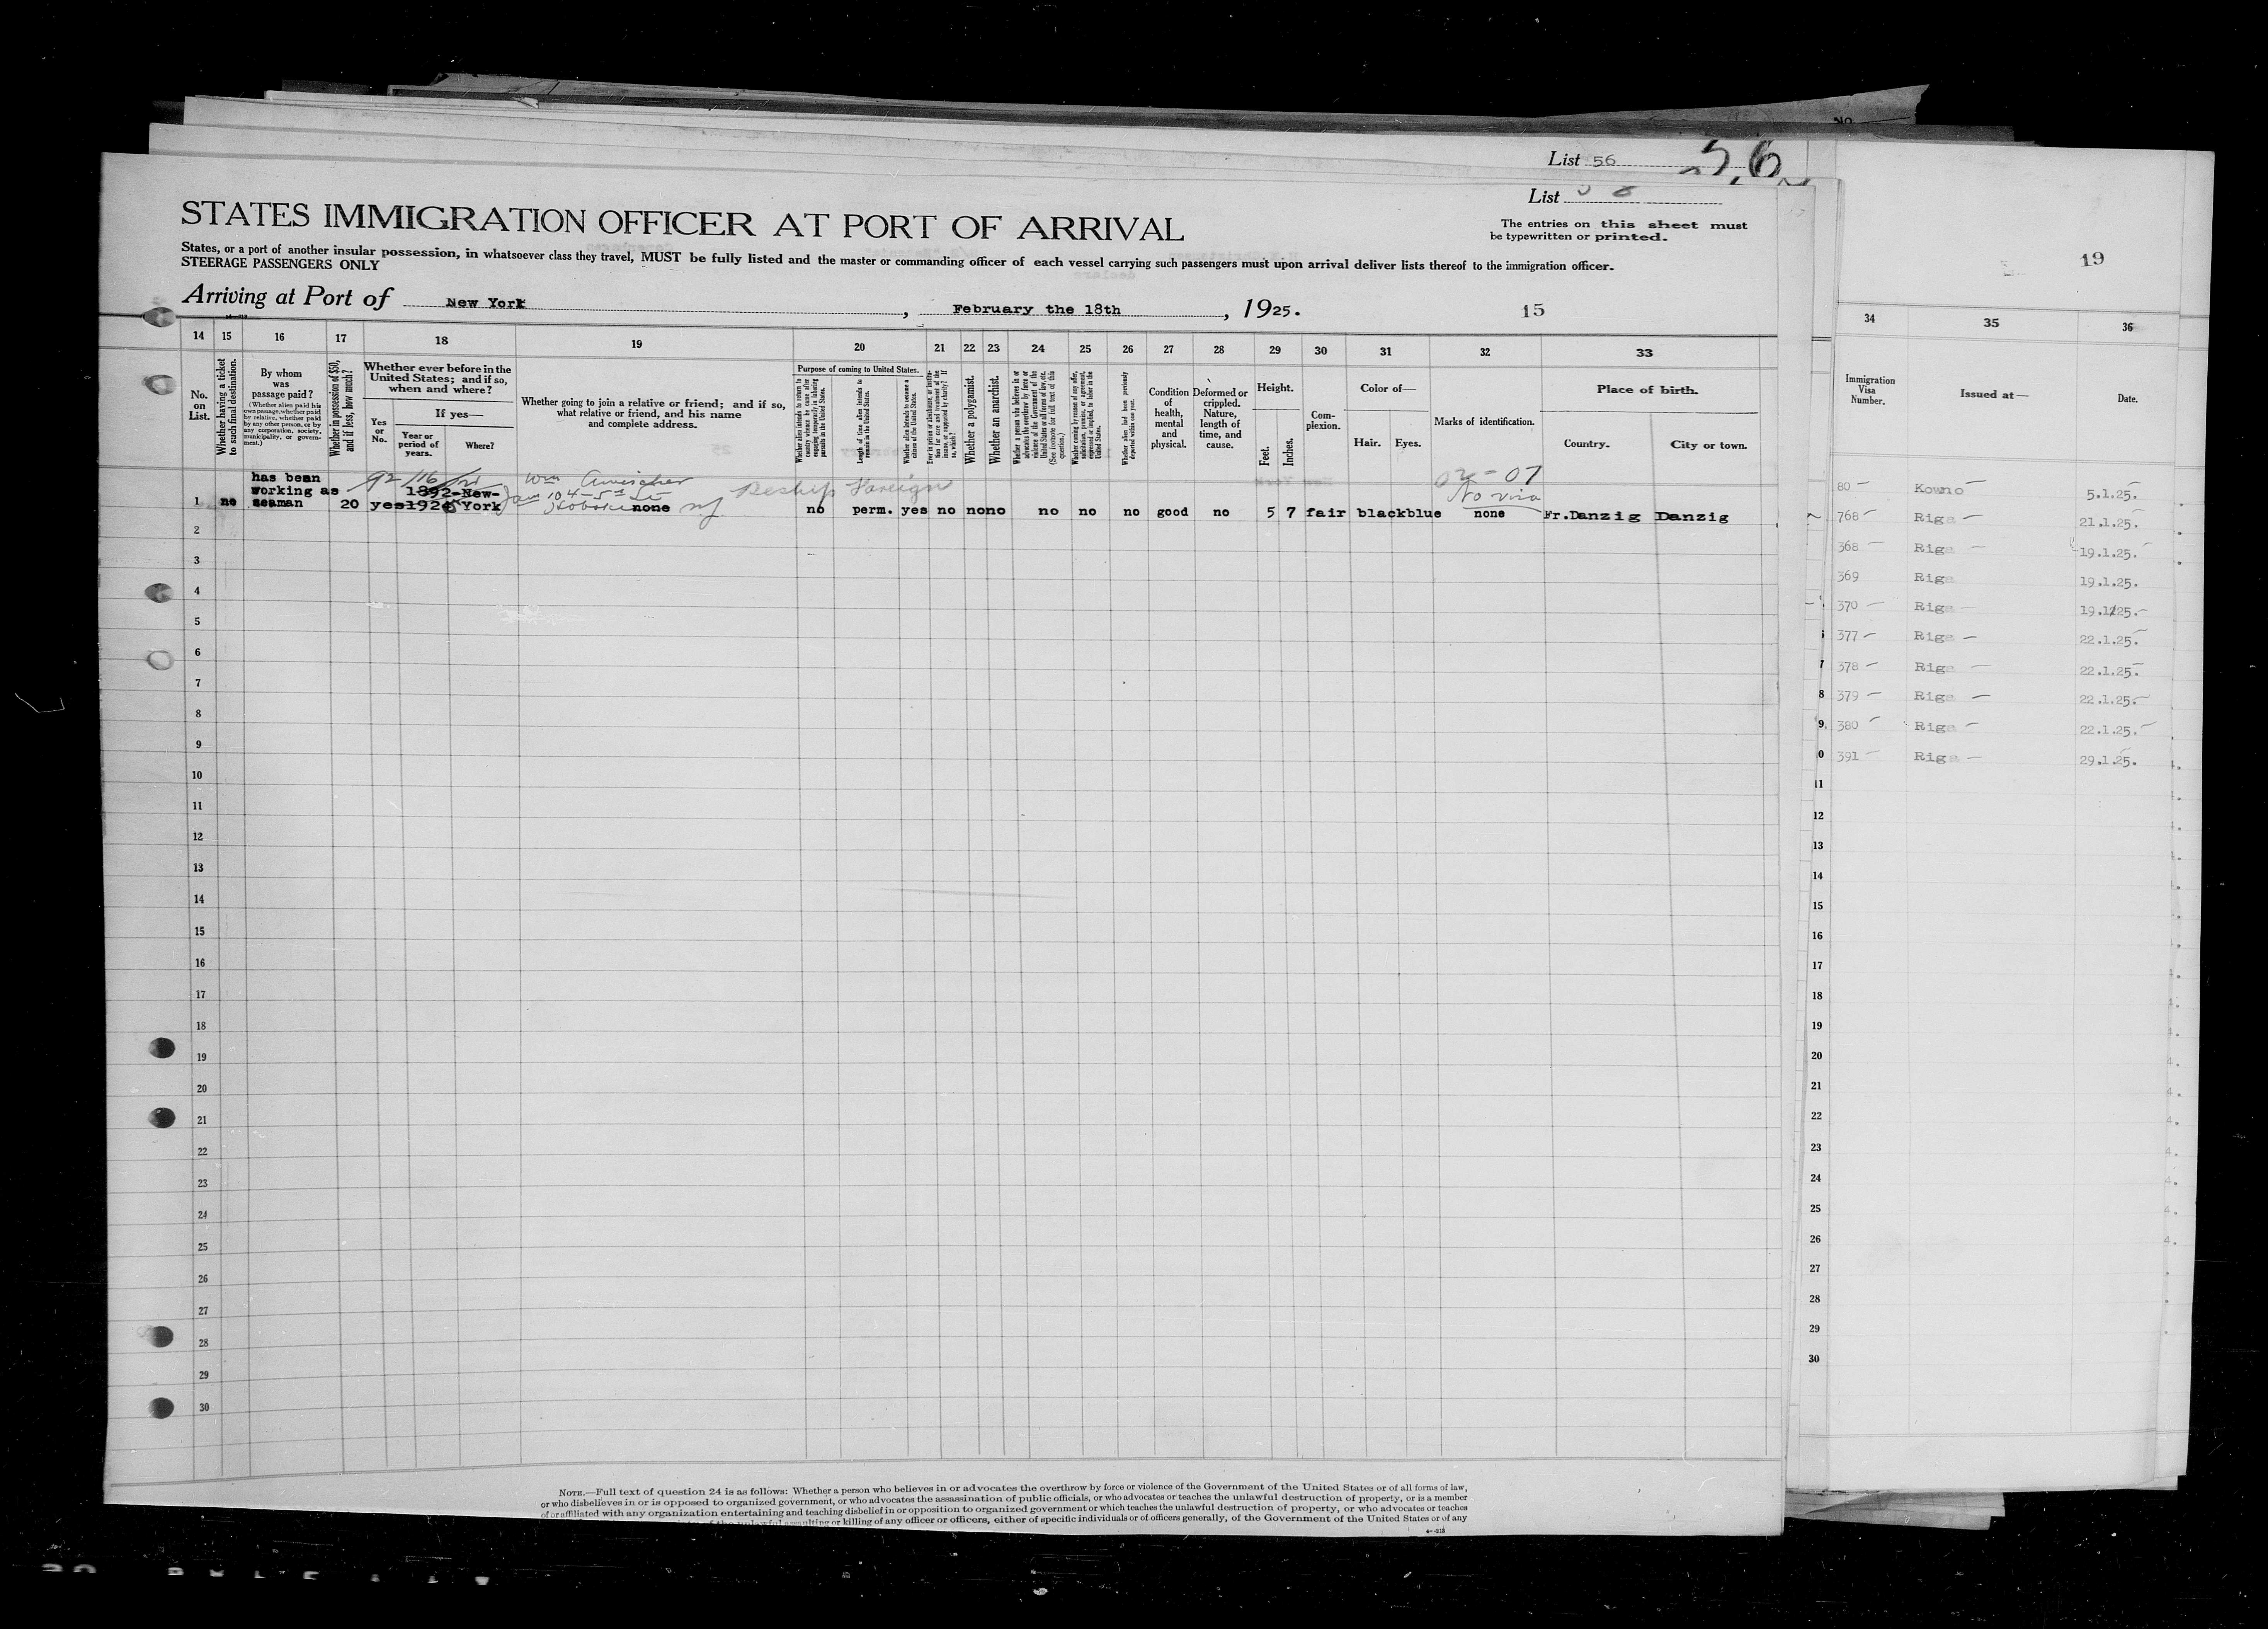 No
List 56
56
List
STATES IMMIGRATION OFFICER AT PORT OF ARRIVAL
The entries on this sheet must
be typewritten or printed.
States, or a port of another insular possession, in whatsoever class they travel, MUST be fully listed and the master or commanding officer of each vessel carrying such passengers must upon arrival deliver lists thereof to the immigration officer.
STEERAGE PASSENGERS ONLY
19
Arriving at Port of New York, February the 18th, 1925.
15
14 15 16 17 18 19 20 21 22 23 24 25 26 27 28 29 30 31 32 33
No. on List.
Whether having a ticket to such final destination.
By whom was passage paid?
(Whether alien paid his own passage, whether paid by relative, whether paid by any other person, or by any corporation, society, municipality, or government.)
Whether in possession of $50, and if less, how much?
Whether ever before in the United States; and if so, when and where?
Yes or No.
If yes—
Year or period of years.
Where?
Whether going to join a relative or friend; and if so, what relative or friend, and his name and complete address.
Purpose of coming to United States.
Whether alien intends to return to country whence he came after engaging temporarily in laboring pursuits in the United States.
Length of time alien intends to remain in the United States.
Whether alien intends to become a citizen of the United States.
Whether a polygamist.
Whether an anarchist.
Condition of health, mental and physical.
Deformed or crippled. Nature, length of time, and cause.
Height.
Feet.
Inches.
Complexion.
Color of—
Hair.
Eyes.
Marks of identification.
Place of birth.
Country.
City or town.
has been
working as
seaman
1 no 20 yes 1892- New-
York
none
Hoboken NJ
Reship Foreign
no perm. yes no no no no no no good no 5 7 fair black blue
No visa
none
Fr.Danzig Danzig
2
3
4
5
6
7
8
9
10
11
12
13
14
15
16
17
18
19
20
21
22
23
24
25
26
27
28
29
30
34 35 36
Immigration Visa Number.
Issued at—
Date.
80 Kowno 5.1.25.
768 Riga 21.1.25.
368 Riga 19.1.25.
369 Riga 19.1.25.
370 Riga 19.1.25.
377 Riga 22.1.25.
378 Riga 22.1.25.
8 379 Riga 22.1.25.
9 380 Riga 22.1.25.
391 Riga 29.1.25.
11
12
13
14
15
16
17
18
19
20
21
22
23
24
25
26
27
28
29
30
NOTE.—Full text of question 24 is as follows: Whether a person who believes in or advocates the overthrow by force or violence of the Government of the United States or of all forms of law,
or who disbelieves in or is opposed to organized government, or who advocates the assassination of public officials, or who advocates or teaches the unlawful destruction of property, or is a member
of or affiliated with any organization entertaining and teaching disbelief in or opposition to organized government or which teaches the unlawful destruction of property, or who advocates or teaches
assaulting or killing of any officer or officers, either of specific individuals or of officers generally, of the Government of the United States or of any